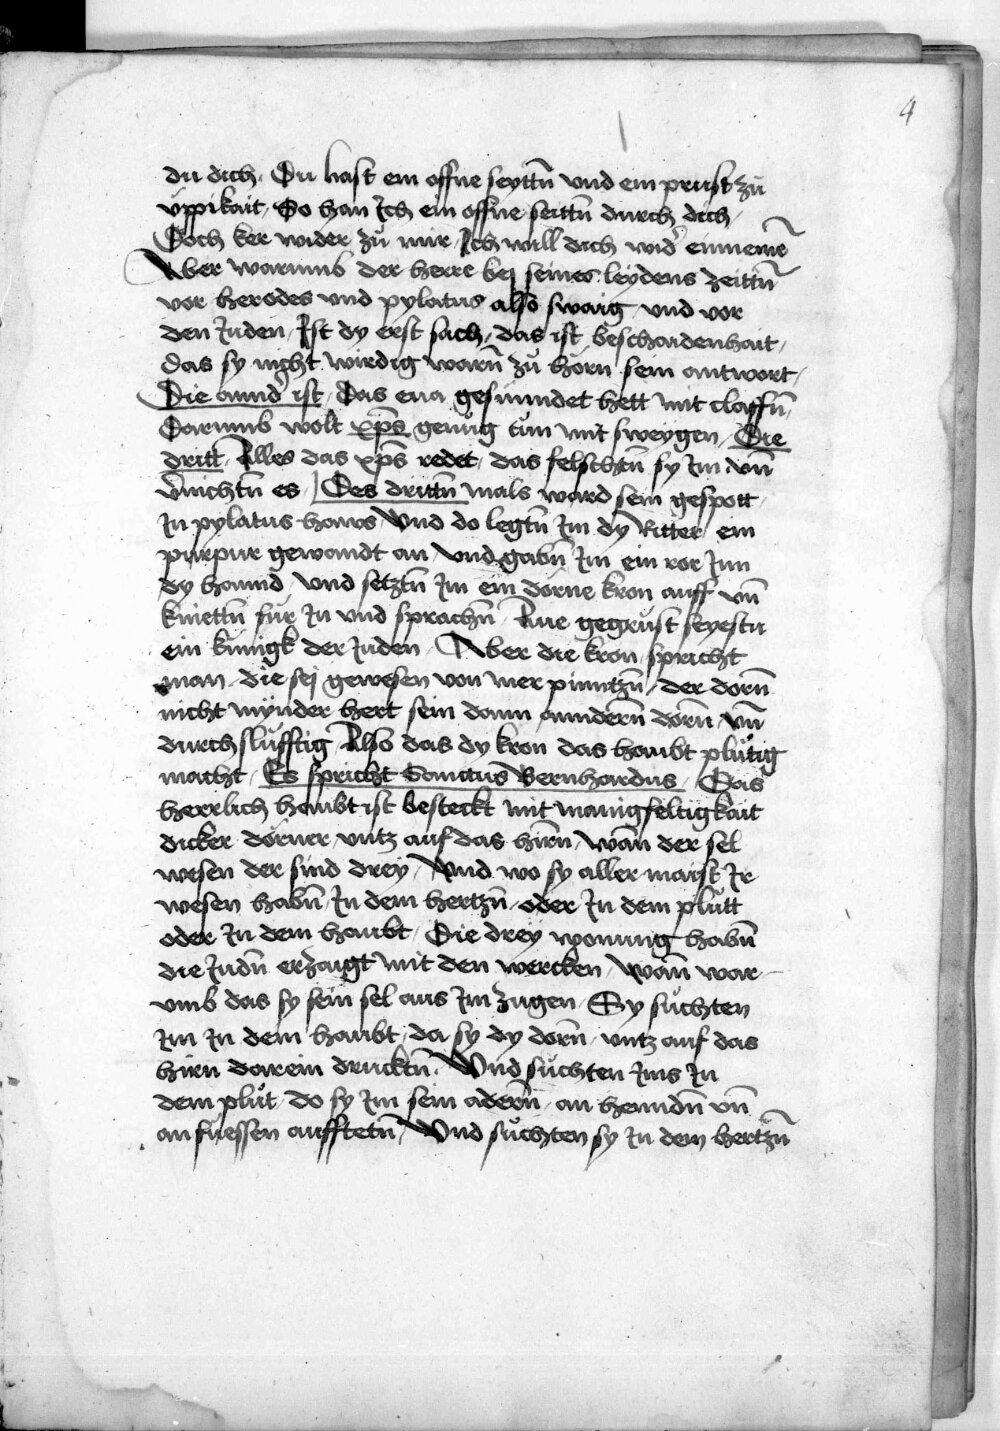 4
du dich. Du hast ein offne seyttn̄ vnd ein prust zů
vppikait, So han Ich ein offne seittn̄ durch dich,
Doch ker wider zů mir, Ich will dich wid̉ einnemē
Aber warumb der herre bej seines leydens zeittn̄
vor herodes vnd pylatus also swaig vnd vor
den Juden, Ist dy erst sach, das ist beschaidenhait,
das sy night wirdig warn̄ zů hörn sein antwort,
Die annd̉ ist, Das eua gesunndet hett mit claffn̄,
Darumb wolt xp̄s genůg tůn mit sweygen, Die
dritt, Alles das xp̄s redet, das felschtn̄ sy Im vn̄
v̉nichtn̄ es, Des drittn̄ mals ward sein gespott
In pylatus haws, Vnd do legtn̄ Im dy Ritter ein
purpur gewandt an, vnd gabn̄ Im ein ror Inn
dy hannd, Vnd setztn̄ Im ein dörne kron auff vn̄
kniettn̄ für In vnd sprachn̄, Aue gegrüst seyestu
ein künigk der Juden, Aber die kron, spricht
man, die sej gewesen von mer pinntzn̄, der dorn̄
nicht mynder hert sein dann anndern̄ dorn̄ vn̄
durchslüfftig, Also das dy kron das haubt plůtig
macht, Es spricht Sanctus Bernhardus, Das
herrlich haubt ist besteckt mit manigfeltigkait
dicker dörner, vntz auf das hirn̄, wān der sel
wesen der sind drey, Vnd wo sy aller maist Ir
wesen habn̄, In dem hertzn̄ oder In dem plůtt
oder In dem haubt, Die drey wonung habn̄
die Judn̄ erzaigt mit den wercken, wān war
vmb das sy sein sel aus Im zugen, Sy sůchten
Im In dem haubt, da sy dy dorn̄ vntz auf das
hirn darein drucktn̄. Vnd sůchten Ims In
dem plůt, do sy Im sein adern̄ an henndn̄ vn̄
an fuessen aufftetn̄, Vnd sůchten sy In dem hertzn̄